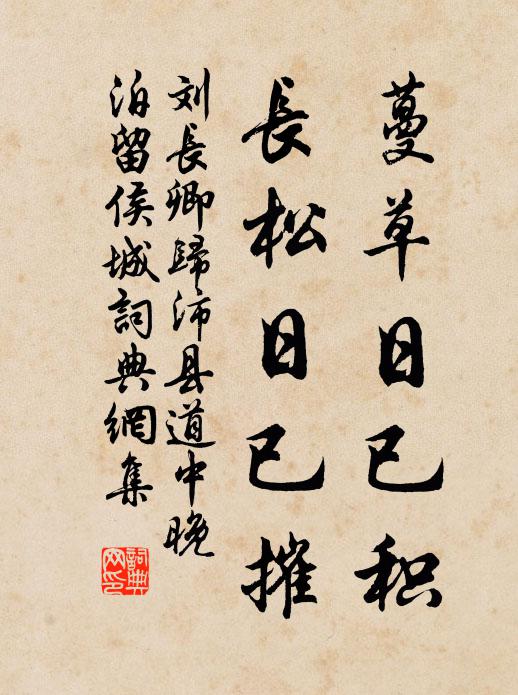 蔓草日已积
長松日已摧
刘長卿歸沛县道中晚
泊留侯城詞典網集
詞典
网印